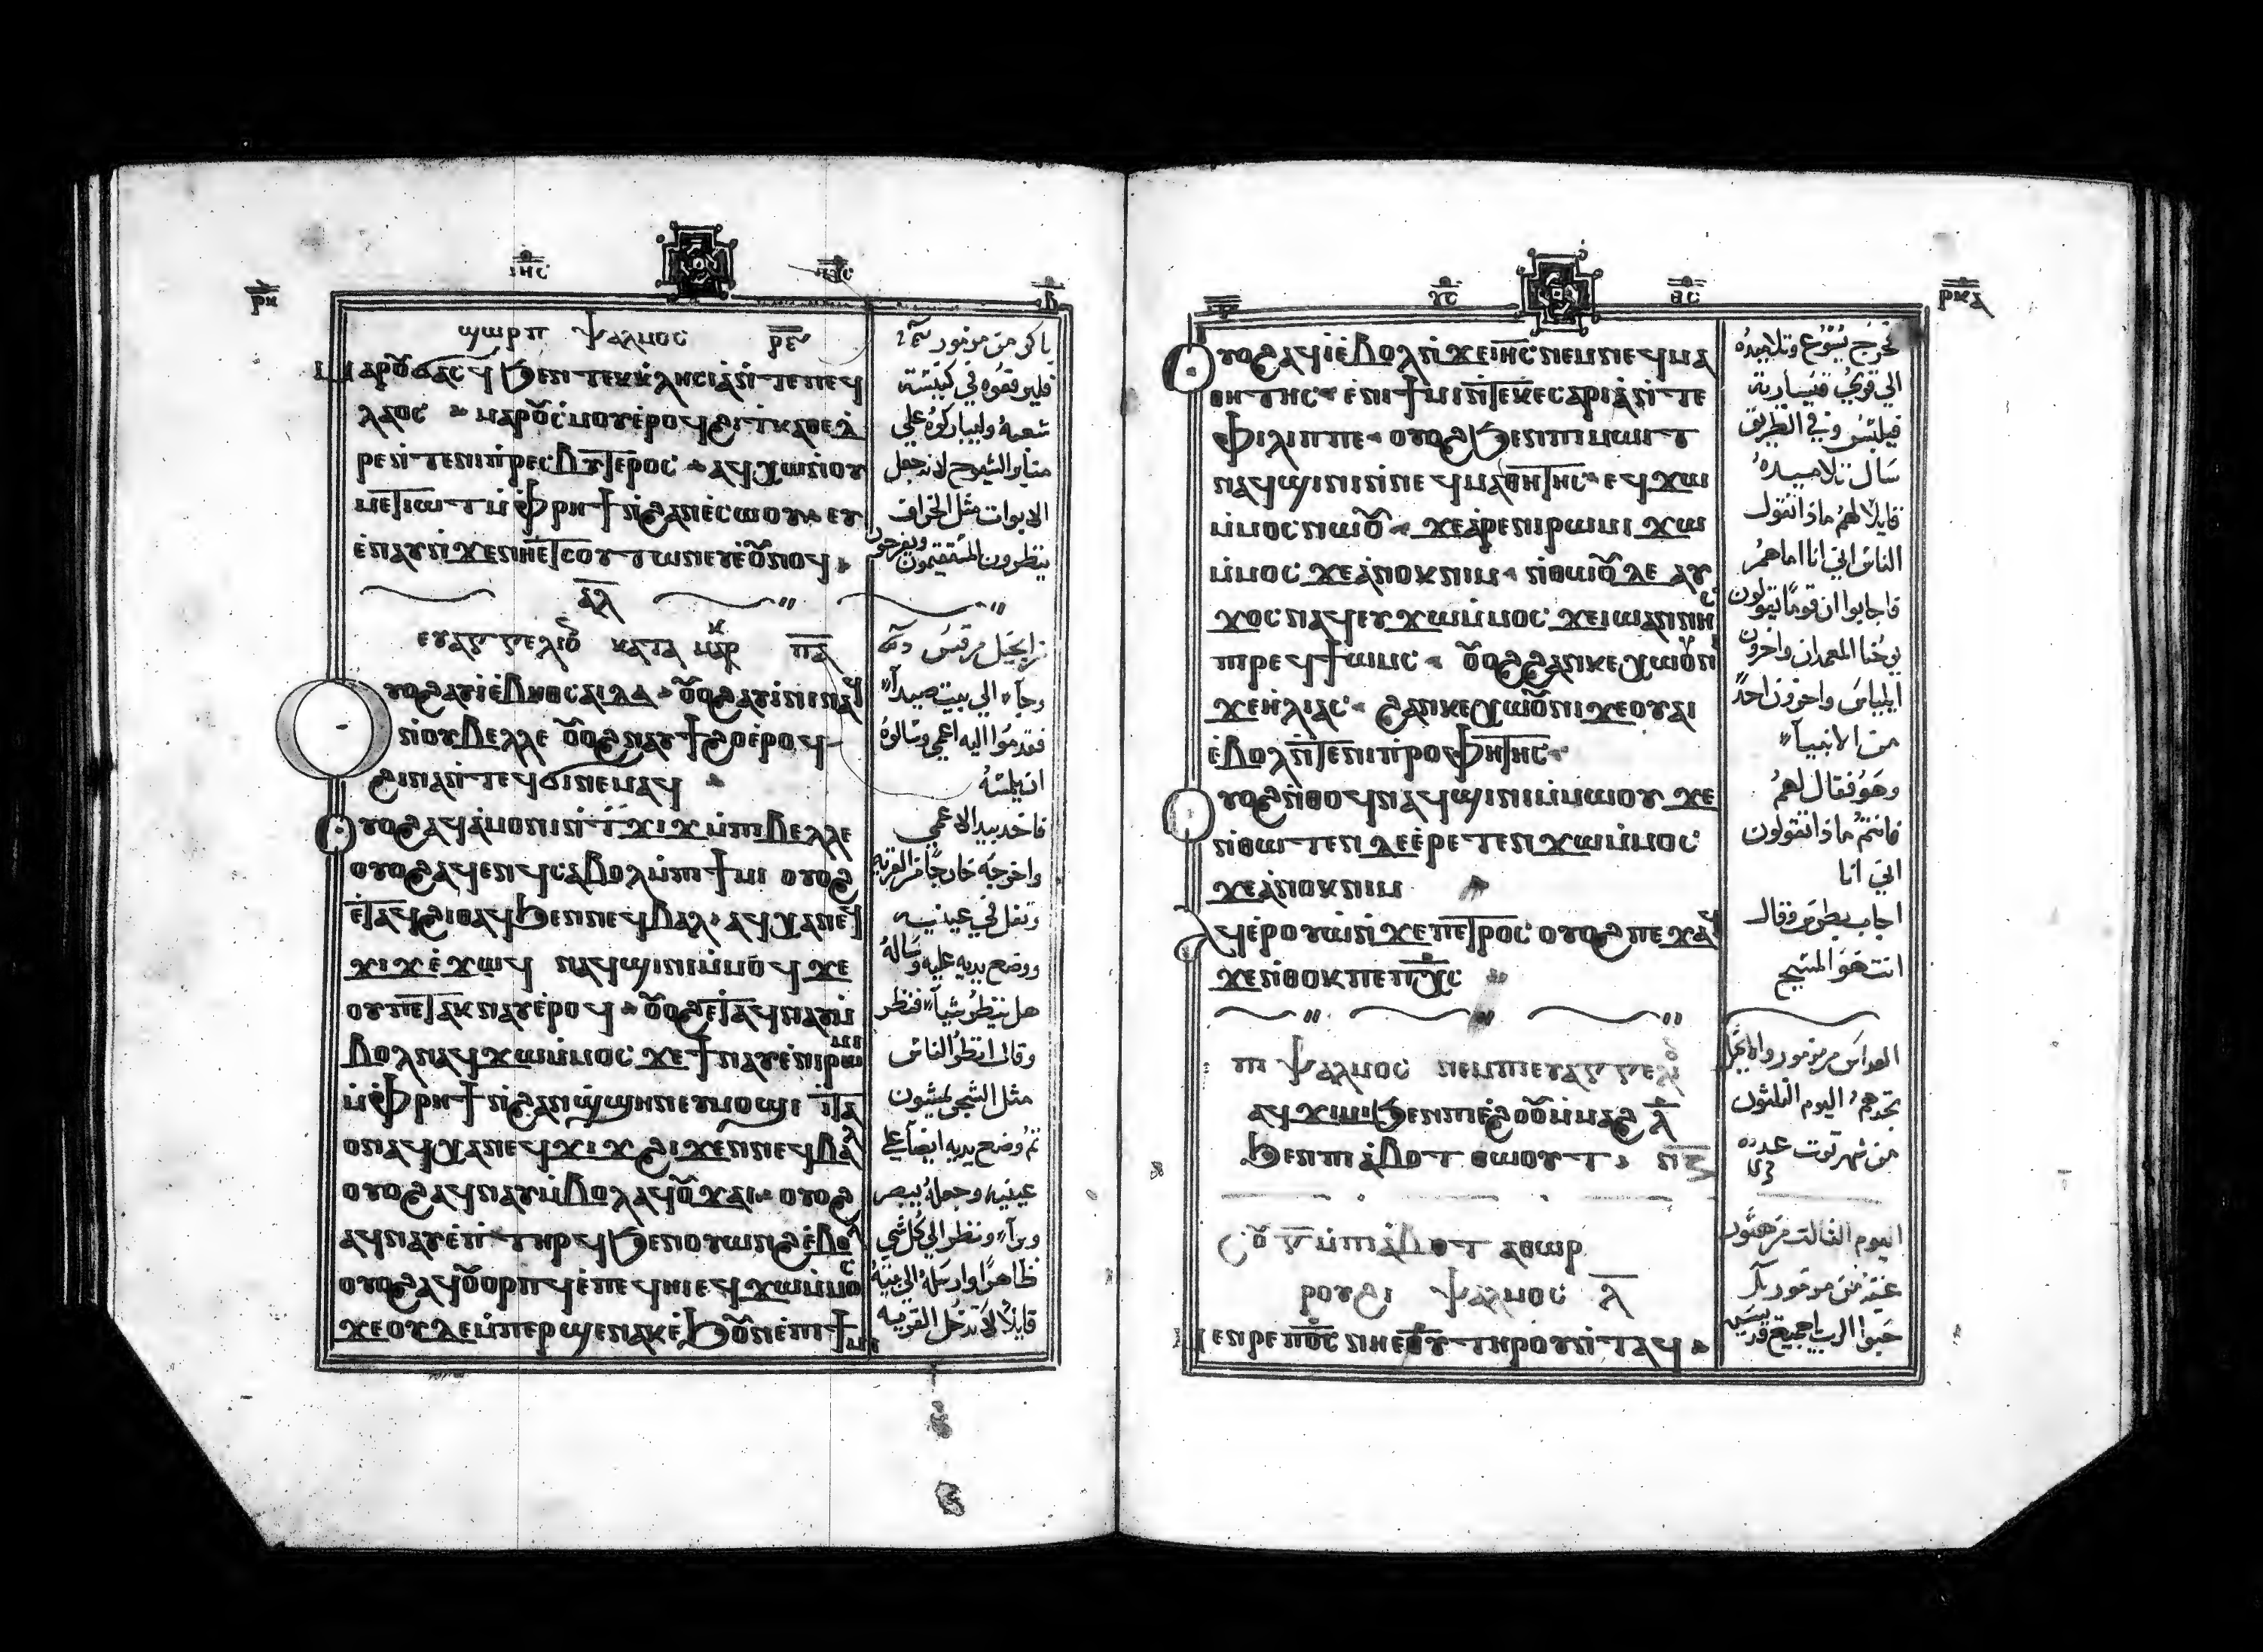 ϣⲱⲣⲡ ⲯⲁⲗⲙⲟⲥ ⲣⲋ
ⲙⲁⲣⲟⲩϭⲁⲥϥ ϧⲉⲛ ⲧⲉⲕⲕⲗⲏⲥⲓⲁ ⲛⲧⲉ ⲡⲉϥ
ⲗⲁⲟⲥ ⲙⲁⲣⲟⲩⲥⲙⲟⲩ ⲉⲣⲟϥ ϩⲓ ⲧⲕⲁⲑⲉⲇ
ⲣⲉ ⲛⲧⲉ ⲛⲓⲡⲣⲉⲥⲃⲩⲧⲉⲣⲟⲥ ⲁϥⲭⲱ ⲛⲟⲩ
ⲙⲉⲧⲓⲱⲧ ⲙⲫⲣⲏϯ ⲛϩⲁⲛⲉⲥⲱⲟⲩ ⲉⲩ
ⲉⲛⲁⲩ ⲛϫⲉ ⲛⲏⲉⲧⲥⲟⲩⲧⲱⲛ ⲉⲩⲉⲟⲩⲛⲟϥ
ⲁⲗ
ⲉⲩⲁⲅⲅⲉⲗⲓⲟ ⲕⲁⲧⲁ ⲙⲁⲣⲕ ⲡⲁ
ⲟⲩⲟϩ ⲁⲩⲓ ⲉⲃⲏⲑⲥⲁⲓⲇⲁ ⲟⲩⲟϩ ⲁⲩⲓⲛⲓ ⲛⲁϥ
ⲛⲟⲩⲃⲉⲗⲗⲉ ⲟⲩⲟϩ ⲛⲁⲩϯϩⲟ ⲉⲣⲟϥ
ϩⲓⲛⲁ ⲛⲧⲉϥϭⲓ ⲛⲉⲙⲁϥ
ⲟⲩⲟϩ ⲁϥⲁⲙⲟⲛⲓ ⲛⲧϫⲓϫ ⲙⲡⲓⲃⲉⲗⲗⲉ
ⲟⲩⲟϩ ⲁϥⲉⲛϥ ⲥⲁⲃⲟⲗ ⲙⲡⲓϯⲙⲓ ⲟⲩⲟϩ
ⲉⲧⲁϥϩⲓⲑⲁϥ ϧⲉⲛ ⲛⲉϥⲃⲁⲗ ⲁϥⲭⲁ ⲛⲉϥ
ϫⲓϫ ⲉϫⲱϥ ⲛⲁϥϣⲓⲛⲓ ⲙⲙⲟϥ ϫⲉ
ⲟⲩ ⲡⲉⲧⲁⲕⲛⲁⲩ ⲉⲣⲟϥ ⲟⲩⲟϩ ⲉⲧⲁϥⲛⲁⲩ ⲙ
ⲃⲟⲗ ⲛⲁϥϫⲱ ⲙⲙⲟⲥ ϫⲉ ϯⲛⲁⲩ ⲉⲛⲓⲣⲱⲙⲓ
ⲙⲫⲣⲏϯ ⲛϩⲁⲛϣϣⲏⲛ ⲉⲩⲙⲟϣⲓ ⲓⲧⲁ
ⲟⲛ ⲁϥⲭⲁ ⲛⲉϥϫⲓϫ ϩⲓϫⲉⲛ ⲛⲉϥⲃⲁⲗ
ⲟⲩⲟϩ ⲁϥⲛⲁⲩ ⲙⲃⲟⲗ ⲁϥⲟⲩϫⲁⲓ ⲟⲩⲟϩ
ⲁϥⲛⲁⲩ ⲉⲛⲧⲏⲣϥ ϧⲉⲛ ⲟⲩⲱⲛϩ ⲉⲃⲟⲗ
ⲟⲩⲟϩ ⲁϥⲟⲩⲟⲣⲡϥ ⲉⲡⲉϥⲏⲓ ⲉϥϫⲱ ⲙⲙⲟⲥ
ϫⲉ ⲟⲩⲇⲉ ⲙⲡⲉⲣϣⲉⲛⲁⲕ ⲉϧⲟⲩⲛ ⲉⲡⲓϯⲙⲓ
باكر من مزمور
فليرفعوه في كنيسة
شعبه وليباركوه علي
منابر الشيوخ لانه جعل
الابوات مثل الخراف
ينظرون المستقيمون ويفرحون
من انجيل مرقس
وجاء الي بيت صيدا
فقدموا اليه اعمي وسالوه
ان يلمسه
فاخد بيد الاعمي
واخرجه خارجا من القرية
وتفل في عينيه
ووضع يديه عليه وساله
هل ينظر شيا فنظر
وقال انظر الناس
مثل الشجر يمشيون
ثم وضع يديه ايضا علي
عينيه وجعله يبصر
وبرا ونظر الي كل شي
ظاهرا وارسله الي بيته
قايلا لا تدخل القرية
ⲣⲕⲁ
ⲟⲩⲟϩ ⲁϥⲓ ⲉⲃⲟⲗ ⲛϫⲉ ⲓⲏⲥ ⲛⲉⲙ ⲛⲉϥⲙⲁ
ⲑⲏⲧⲏⲥ ⲉⲛⲓϯⲙⲓ ⲛⲧⲉ ⲕⲉⲥⲁⲣⲓⲁ ⲛⲧⲉ
ⲫⲓⲗⲓⲡⲡⲉ ⲟⲩⲟϩ ϧⲉⲛ ⲡⲓⲙⲱⲓⲧ
ⲛⲁϥϣⲓⲛⲓ ⲛⲛⲉϥⲙⲁⲑⲏⲧⲏⲥ ⲉϥϫⲱ
ⲙⲙⲟⲥ ⲛⲱⲟⲩ ϫⲉ ⲁⲣⲉ ⲛⲓⲣⲱⲙⲓ ϫⲱ
ⲙⲙⲟⲥ ϫⲉ ⲁⲛⲟⲕ ⲛⲓⲙ ⲛⲑⲱⲟⲩ ⲇⲉ ⲁⲩ
ϫⲟⲥ ⲛⲁϥ ⲉⲩϫⲱ ⲙⲙⲟⲥ ϫⲉ ⲓⲱⲁⲛⲛⲏⲥ
ⲡⲓⲣⲉϥϯⲱⲙⲥ ⲟⲩⲟϩ ϩⲁⲛⲕⲉⲭⲱⲟⲩⲛⲓ
ϫⲉ ⲏⲗⲓⲁⲥ ϩⲁⲛⲕⲉⲭⲱⲟⲩⲛⲓ ϫⲉ ⲟⲩⲁⲓ
ⲉⲃⲟⲗ ⲛⲧⲉ ⲛⲓⲡⲣⲟⲫⲏⲧⲏⲥ
ⲟⲩⲟϩ ⲛⲑⲟϥ ⲛⲁϥϣⲓⲛⲓ ⲙⲙⲱⲟⲩ ϫⲉ
ⲛⲑⲱⲧⲉⲛ ⲇⲉ ⲉⲣⲉⲧⲉⲛ ϫⲱ ⲙⲙⲟⲥ
ϫⲉ ⲁⲛⲟⲕ ⲛⲓⲙ
ⲁϥⲉⲣⲟⲩⲱ ⲛϫⲉ ⲡⲉⲧⲣⲟⲥ ⲟⲩⲟϩ ⲡⲉϫⲁϥ
ϫⲉ ⲛⲑⲟⲕ ⲡⲉ ⲡⲭⲥ
ⲡⲓⲯⲁⲗⲙⲟⲥ ⲛⲉⲙ ⲡⲓⲉⲩⲁⲅⲅⲉⲗⲓⲟ
ⲁϥⲭⲏ ϧⲉⲛ ⲡⲓⲉϩⲟⲟⲩ ⲙⲙⲁϩ ⲗ
ϧⲉⲛ ⲡⲓⲁⲃⲟⲧ ⲑⲱⲟⲩⲧ
ⲥⲟⲩ ⲅ ⲙⲡⲓⲁⲃⲟⲧ ⲁⲑⲱⲣ
ⲣⲟⲩϩⲓ ⲯⲁⲗⲙⲟⲥ ⲗ
ⲙⲉⲛⲣⲉ ⲡⲟⲥ ⲛⲏⲉⲑⲩ ⲧⲏⲣⲟⲩ ⲛⲧⲁϥ
خرج يسوع وتلاميذه
الي قري قيسارية
فيلبس وفي الطريق
سال تلاميذه
قايلا لهم ماذا تقول
الناس اني انا اما هم
فاجابوا ان قوما يقولون
يوحنا المعمدان واخرون
ايلياس واخرون احدا
من الانبيا
وهو فقال لهم
فانتم ماذا تقولون
اني انا
اجاب بطرس وقال
انت هو المسيح
القداس مزمور وانجيل
تجدهم اليوم الثلثون
من شهر توت عدده
اليوم الثالث من هتور
عشية من مزمور
حبوا الرب يا جميع قديسيه